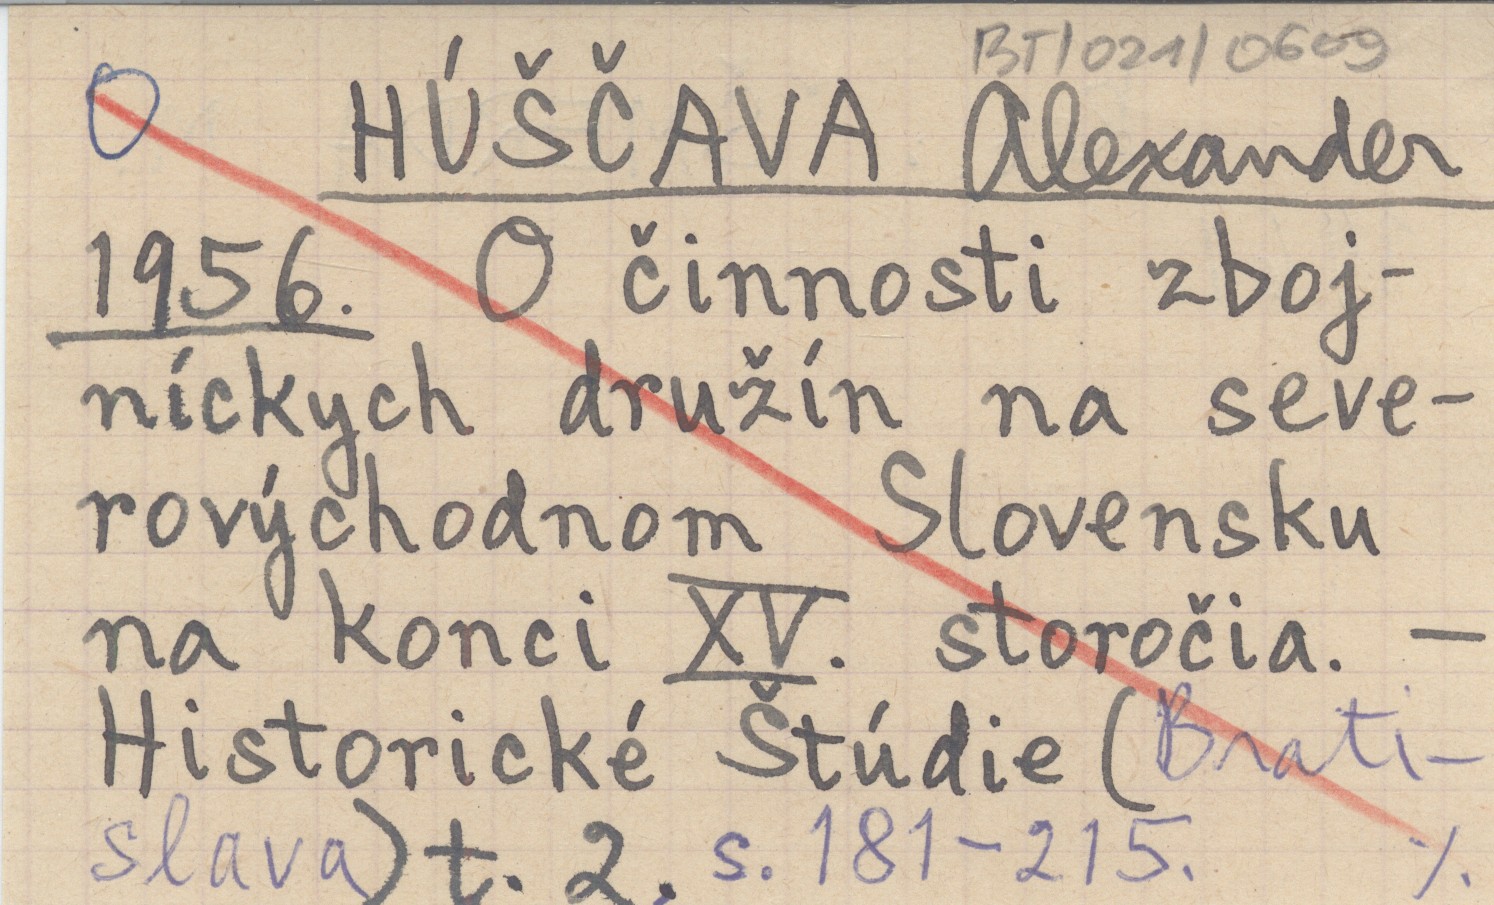 BT/021/0609
O HÚŠČAVA Alexander
1956. O činnosti zboj-
níckych družín na seve-
rovýchodnom Slovensku
na konci XV. storočia. –
Historické Štúdie (Brati-
slava) t. 2, s. 181-215. ⁒